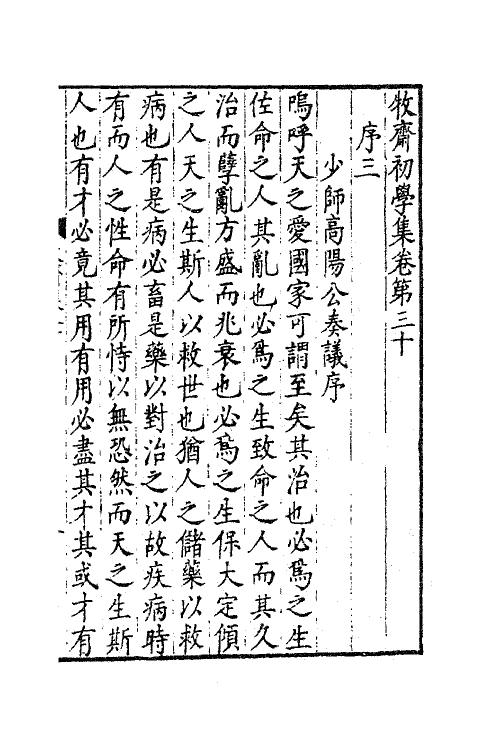 牧齋初學集卷第三十
序三
少師高陽公奏議序
嗚呼天之愛國家可謂至矣其治也必爲之生
佐命之人其亂也必爲之生致命之人而其久
治而孽亂方盛而兆衰也必爲之生保大定傾
之人天之生斯人以救世也猶人之儲藥以救
病也有是病必畜是藥以對治之以故疾病時
有而人之性命有所恃以無恐然而天之生斯
人也有才必竟其用有用必盡其才其或才有